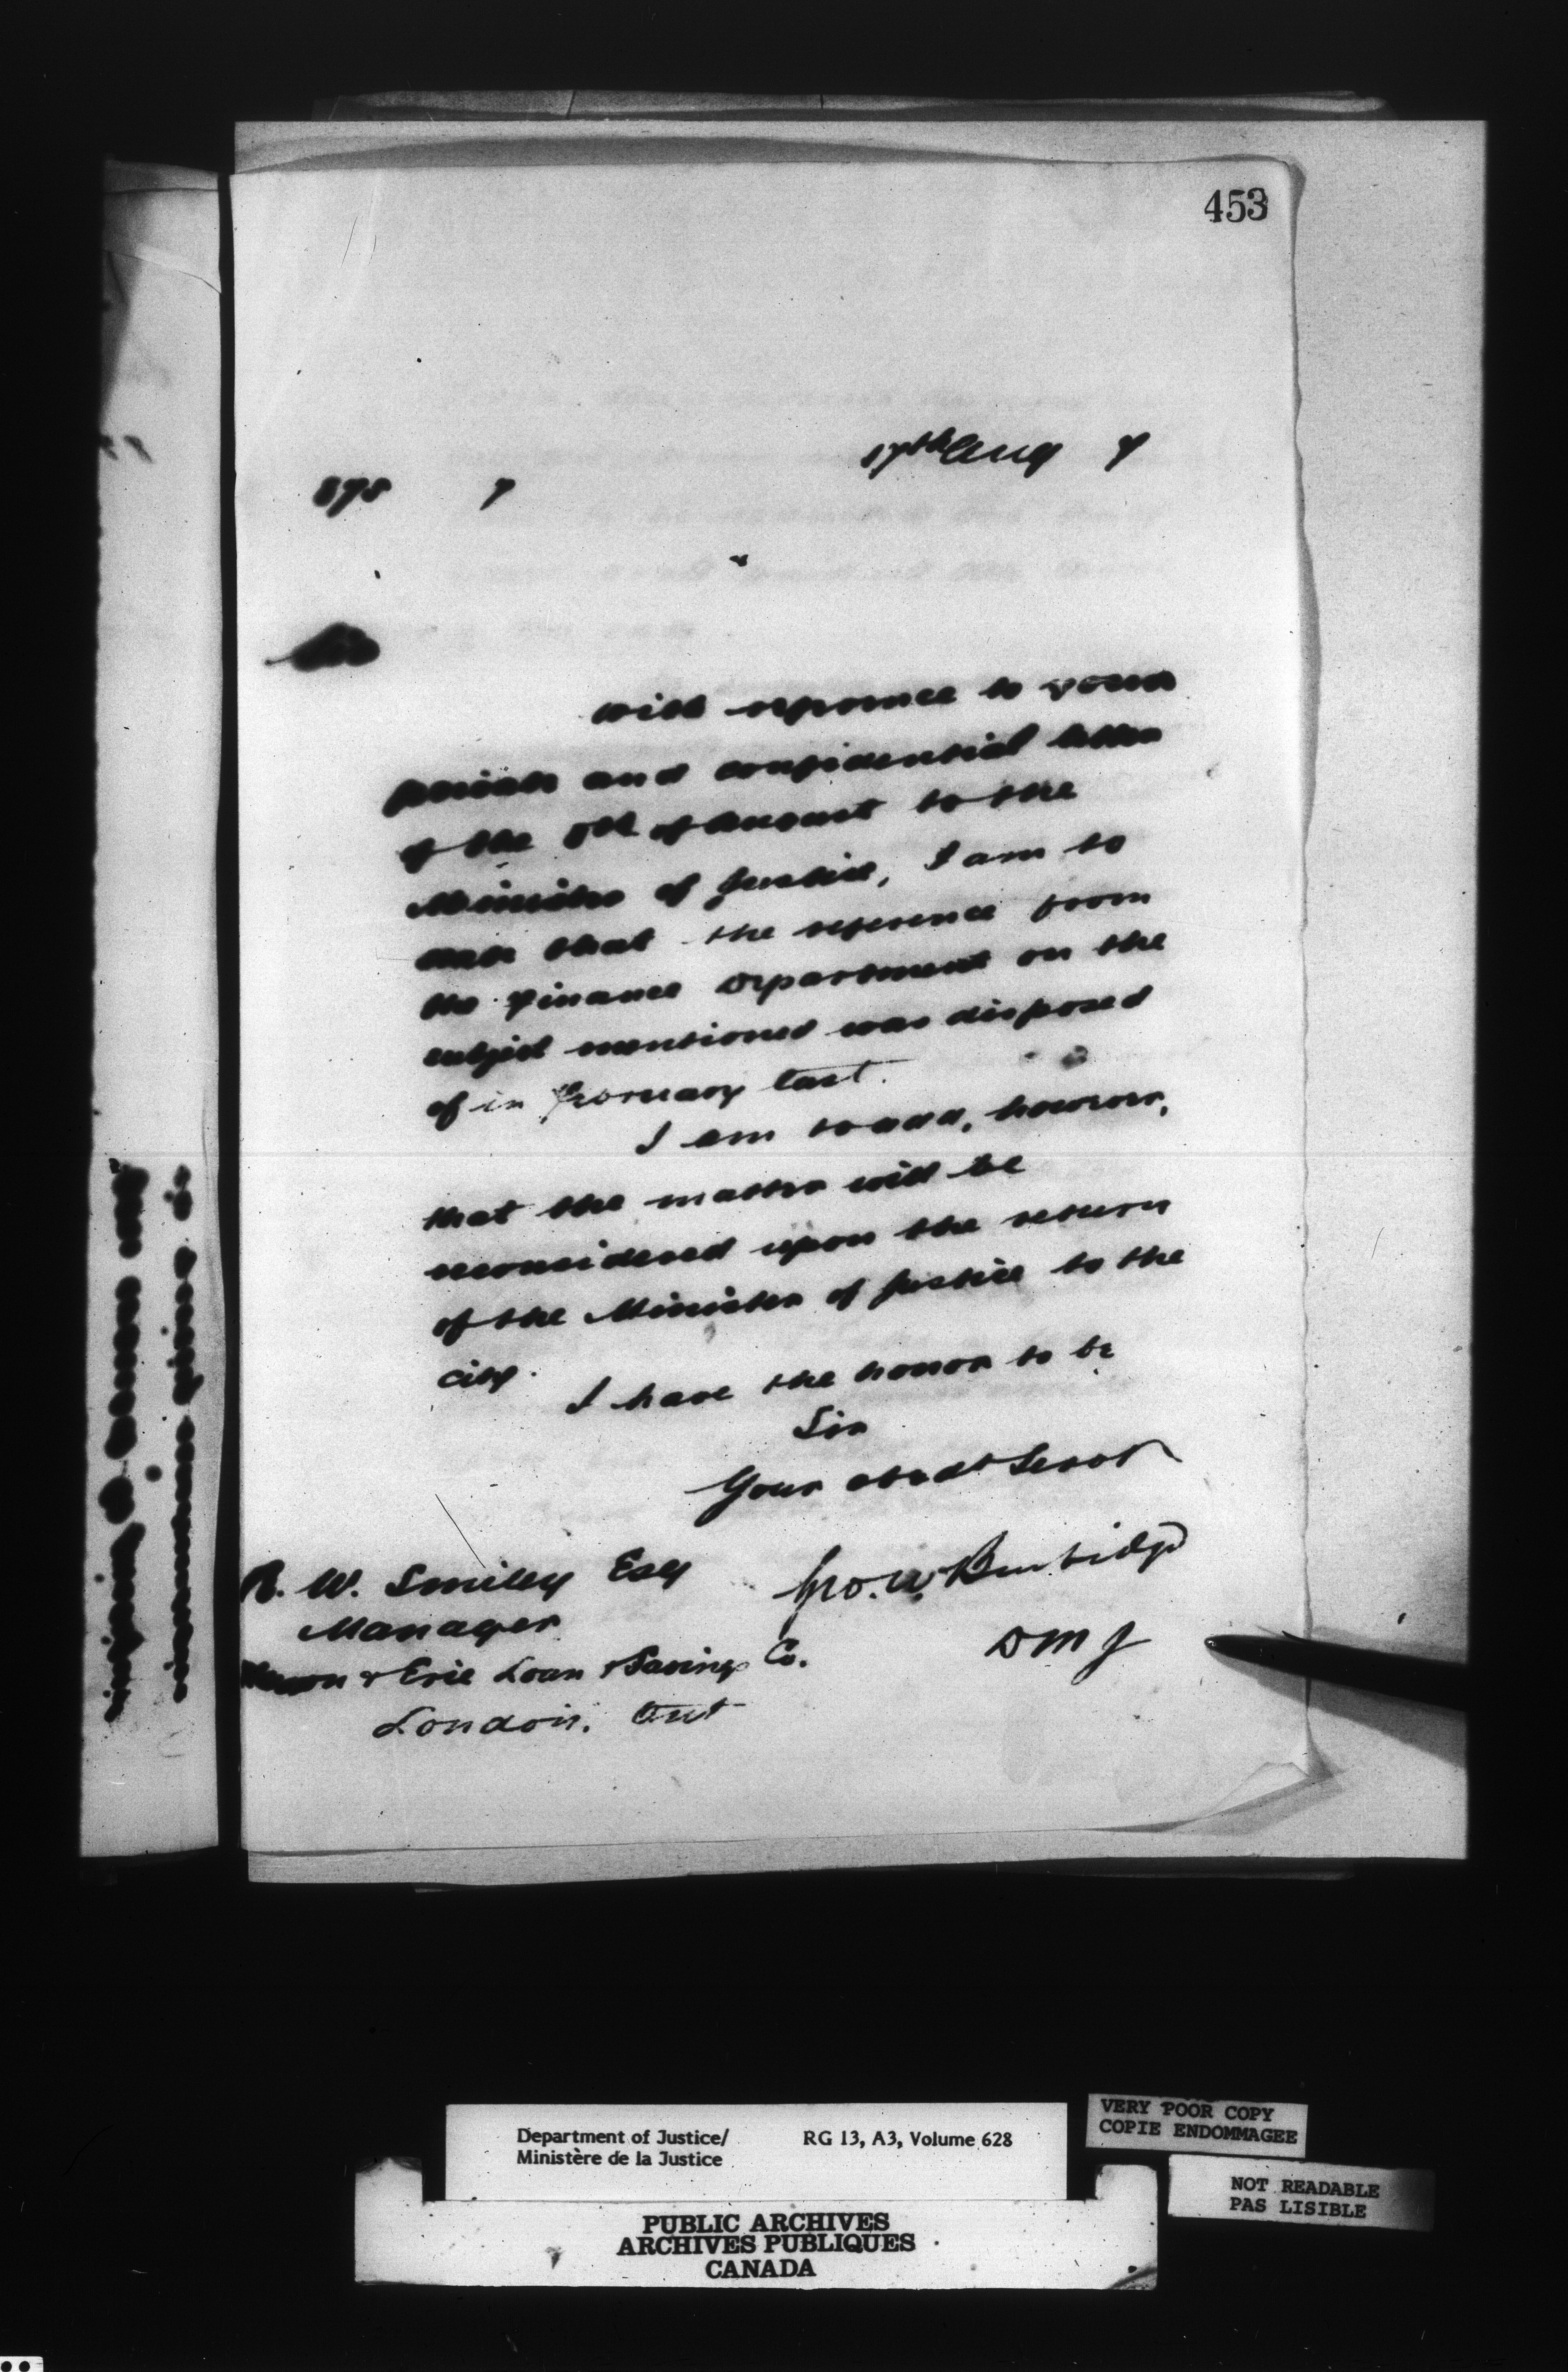 453
17th Aug 7
875 7
Sir
With reference to your
private and confidential letter
of the 8th of August to the
Minister of Justice, I am to
state that the reference from
the Finance Department on the
subject mentioned was disposed
of in February last.
I am to add, however,
that the matter will be
reconsidered upon the return
of the Minister of Justice to the
city.
I have the honor to be
Sir
Your obedt Servt
Geo. W. Burbidge
D M J
R. W. Smiley Esq
Manager
Huron & Erie Loan & Savings Co.
London. Ont
Department of Justice/
Ministère de la Justice
RG 13, A3, Volume 628
VERY POOR COPY
COPIE ENDOMMAGEE
NOT READABLE
PAS LISIBLE
PUBLIC ARCHIVES
ARCHIVES PUBLIQUES
CANADA